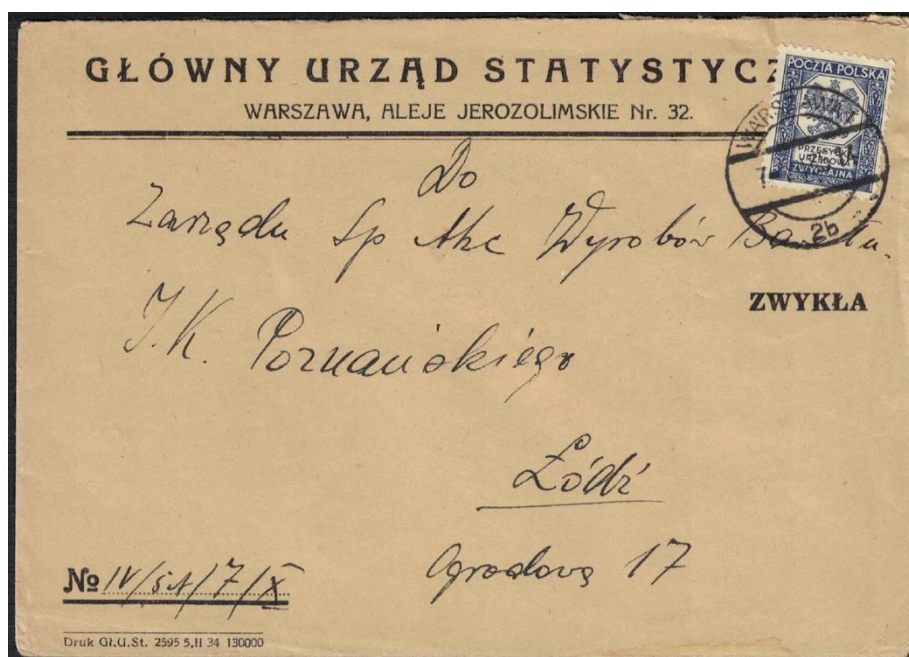 GŁÓWNY URZĄD STATYSTYCZ
WARSZAWA, ALEJE JEROZOLIMSKIE Nr. 32.
POCZTA POLSKA
PRZESYŁKA
URZĘDOWA
ZWYCZAJNA
WARSZAWA 1
2b
Do
Zarządu Sp Akc Wyrobów Ba
ZWYKŁA
I.K. Poznańskiego
Łódź
Ogrodowa 17
№ IV/śA/7/X
Druk Gł.U.St. 2595 5.II 34 130000